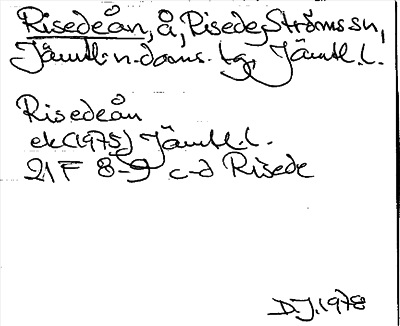 Risedeån, å, Risede, Ströms sn,
Jämtl:n.doms. tg, Jämtl.l.
Risedeån
ek(1975) Jämtl.l.
21F 8-9 c-d Risede
D.J.1978